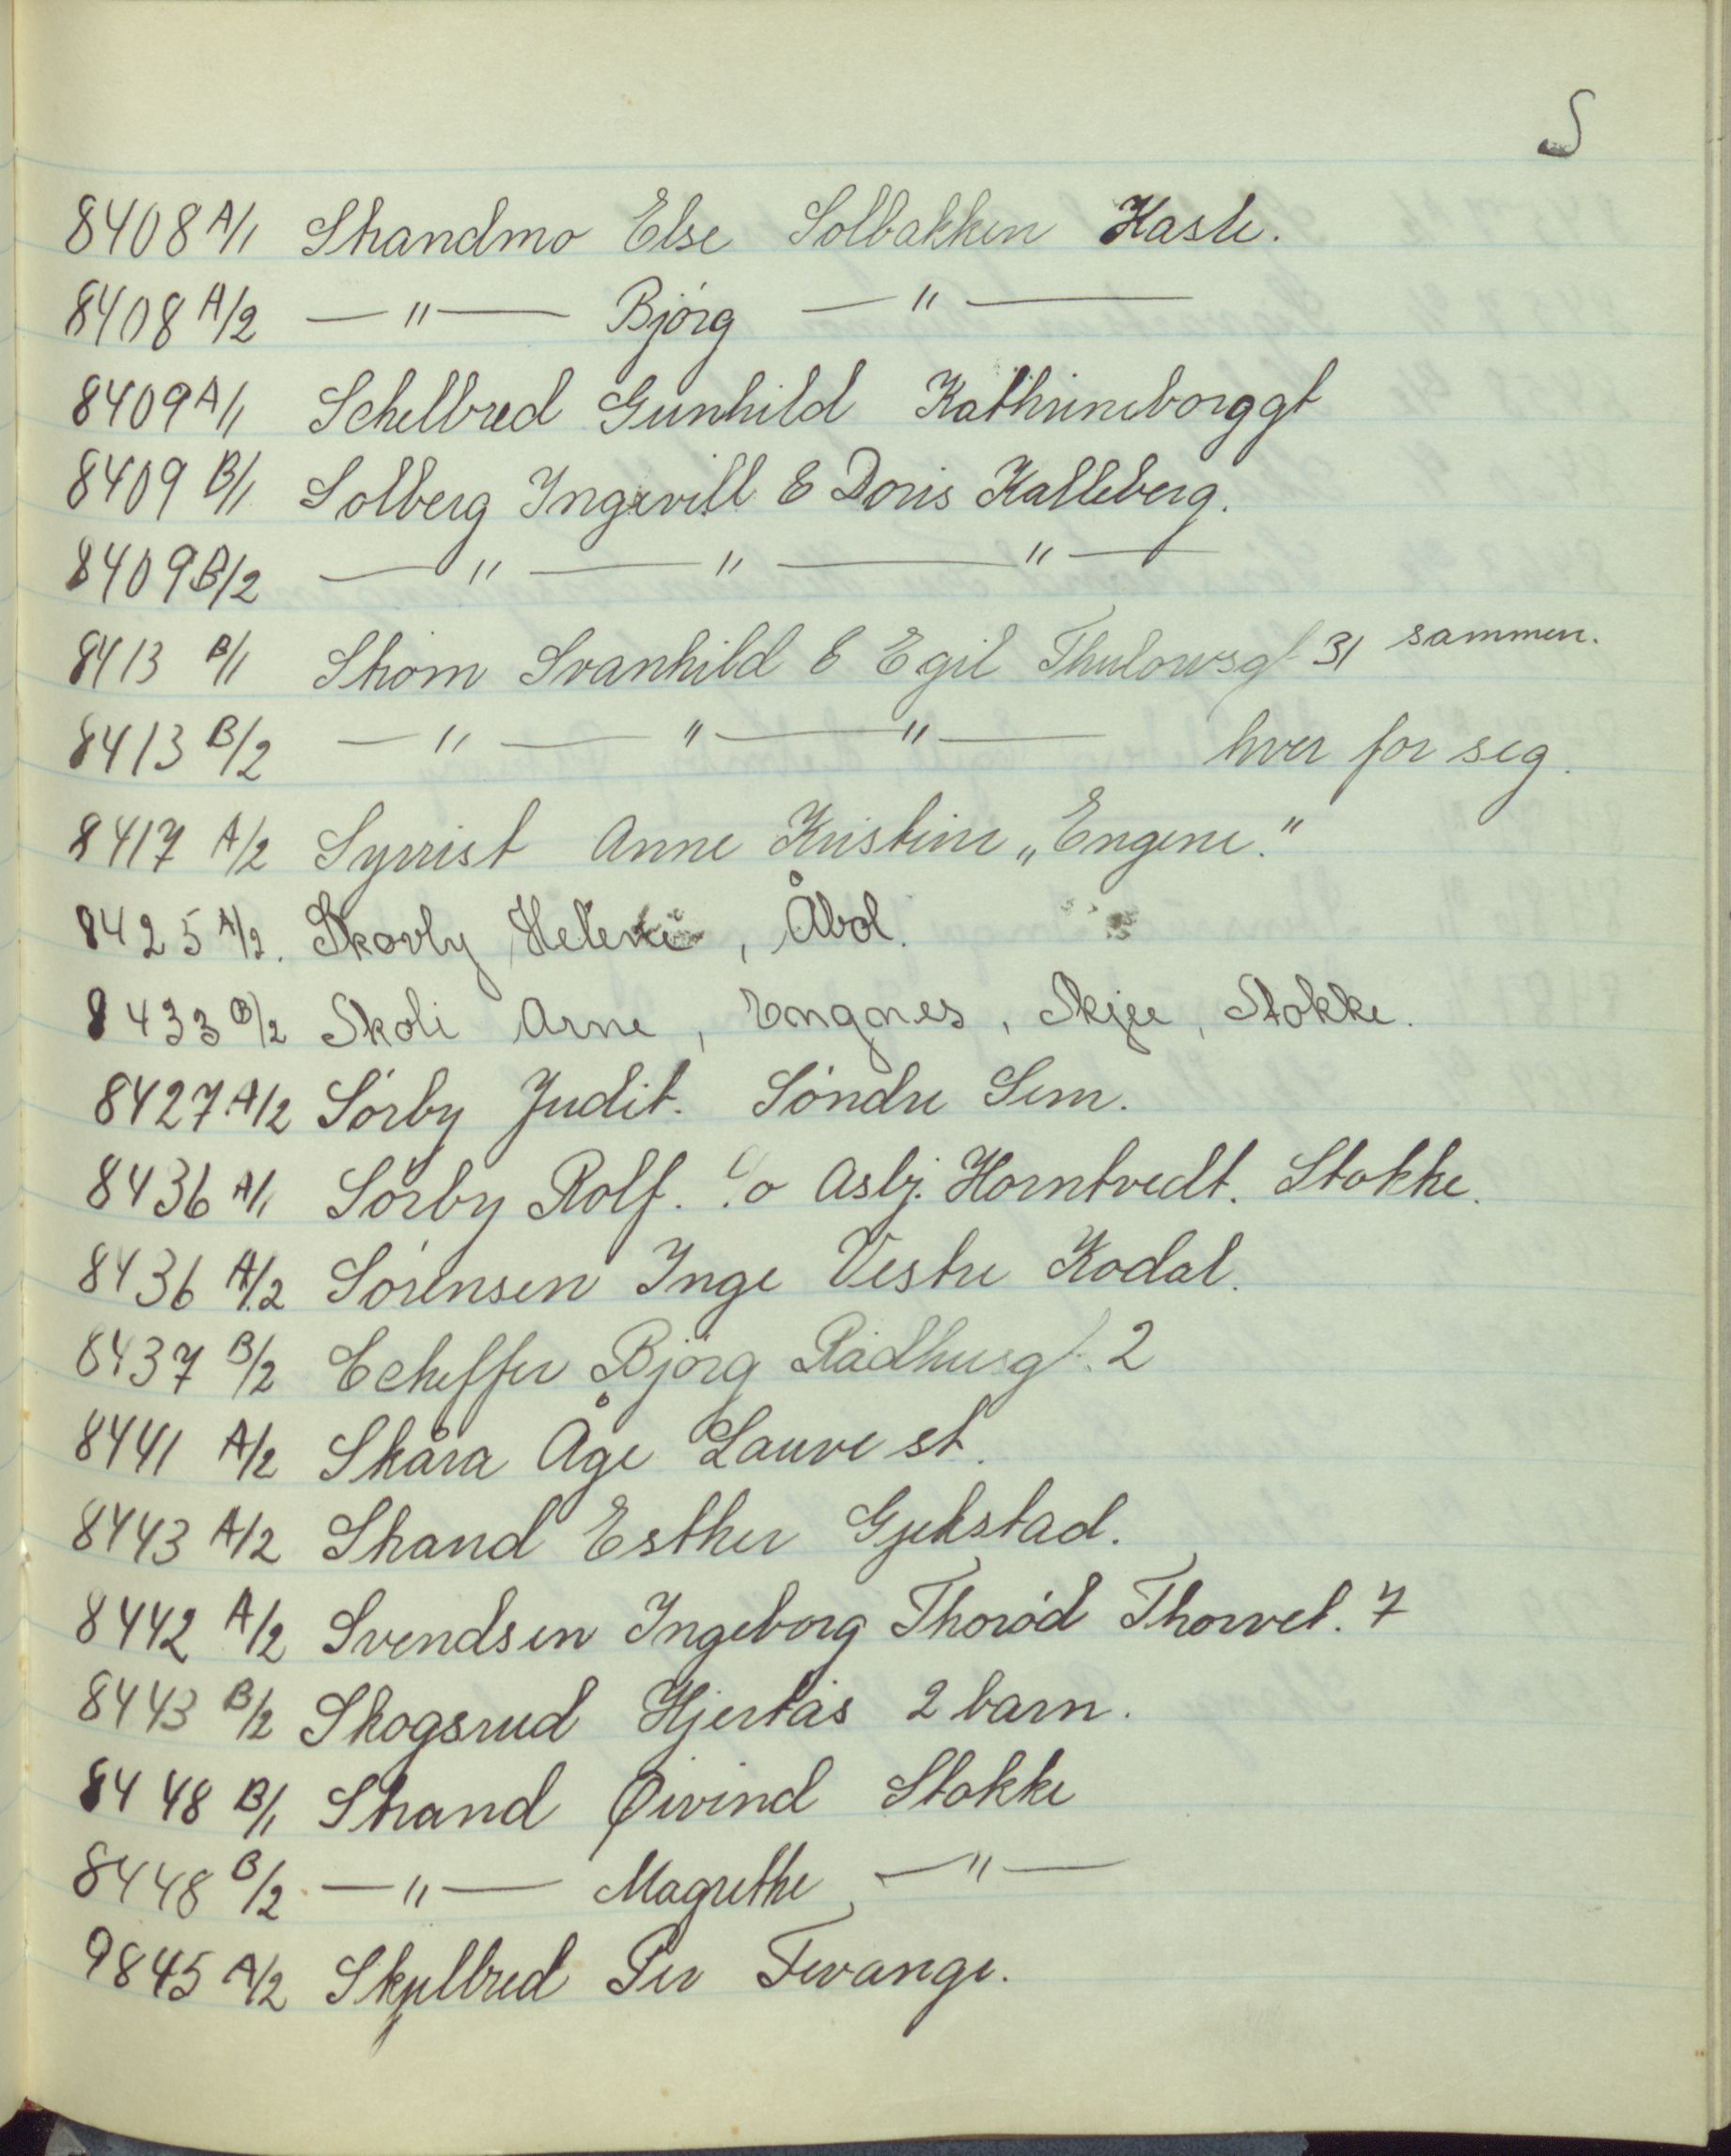 S
8408 A/1 Strandmo Else Solbakken Hasle.
8408 A/2 — " — Bjørg — " —
8409 A/1 Schelbred Gunhild Kathrineborggt
8409 B/1 Solberg Ingervill & Doris Kalleberg.
8409 B/2 — " — " — " —
8413 B/1 Strøm Svanhild & Egil Thulowsgt 31 sammen.
8413 B/2 — " — " — " — hver for seg.
8417 A/2 Syrrist Anne Kristine „Engene."
8425 A/2. Skovly Helene, Åbol.
8433 B/2 Skoli Arne, Engnes, Skjee, Stokke.
8427 A/2 Sørby Judit. Søndre Sem.
8436 A/1 Sørby Rolf. c/o Asbj. Horntvedt. Stokke.
8436 A/2 Sørensen Inge Vestre Kodal.
8437 B/2 Scheffer Bjørg Rådhusgt. 2
8441 A/2 Skåra Åge Lauve st.
8443 A/2 Strand Esther Gjekstad.
8442 A/2 Svendsen Ingeborg Thorød Thorvet. 7
8443 B/2 Skogsrud Hjertås 2 barn.
8448 B/1 Strand Øivind Stokke
8448 B/2 — " — Magrethe — " —
9845 A/2 Skjelbred Per Tevange.